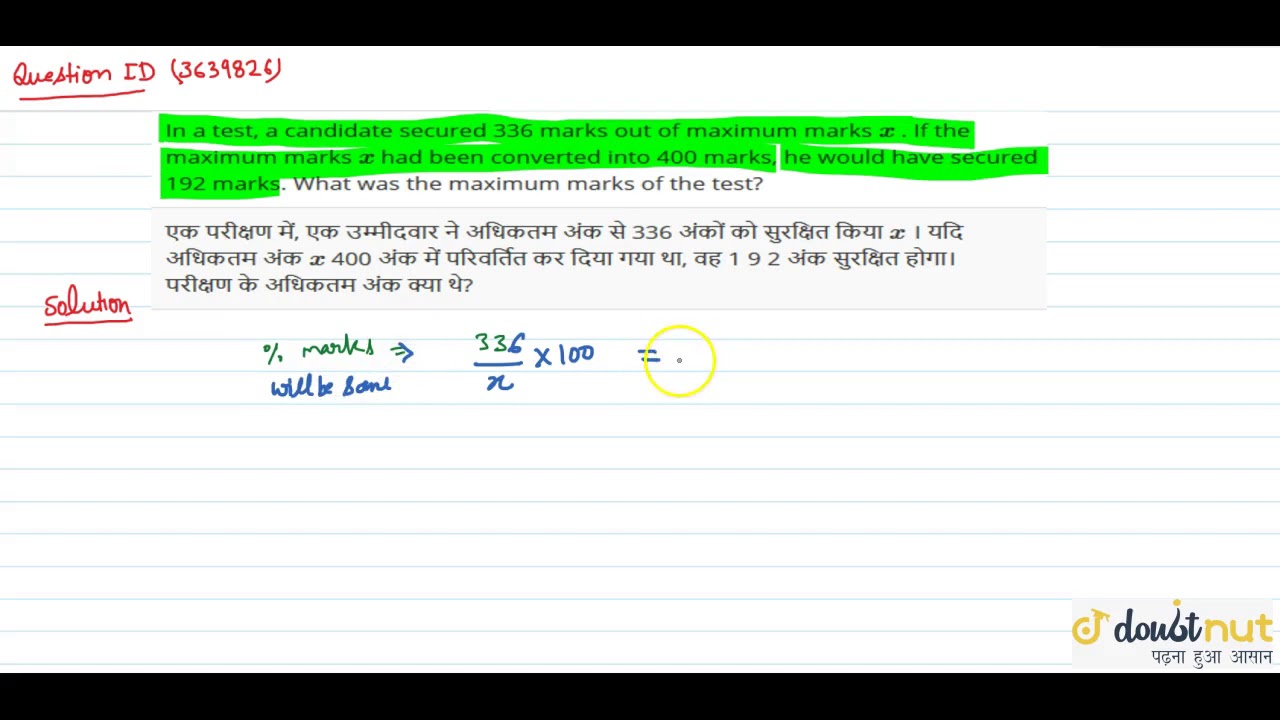 Question ID (3639826)
In a test, a candidate secured 336 marks out of maximum marks x . If the
maximum marks x had been converted into 400 marks, he would have secured
192 marks. What was the maximum marks of the test?
एक परीक्षण में, एक उम्मीदवार ने अधिकतम अंक से 336 अंकों को सुरक्षित किया x । यदि
अधिकतम अंक x 400 अंक में परिवर्तित कर दिया गया था, वह 1 9 2 अंक सुरक्षित होगा।
परीक्षण के अधिकतम अंक क्या थे?
Solution
% marks ⇒ 336/x × 100 =
will be same
doubtnut
पढ़ना हुआ आसान